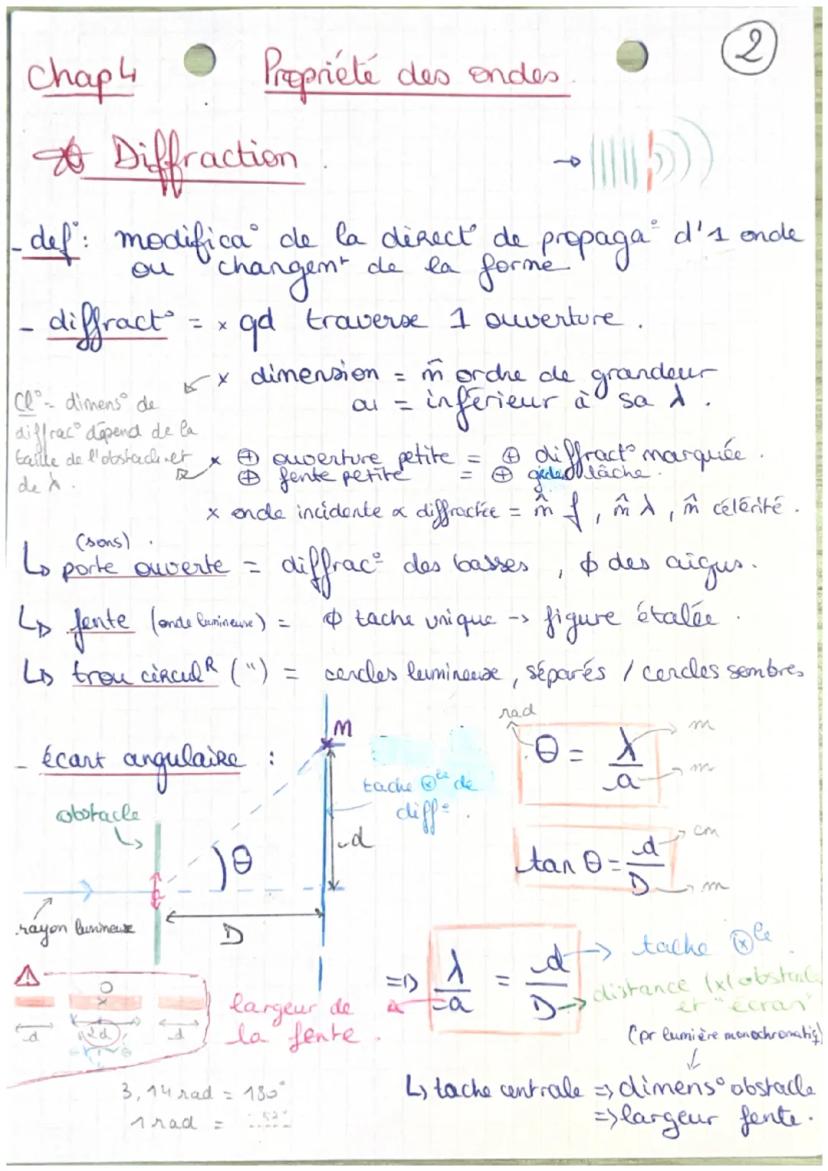 2
Chap 4 Propriété des ondes.
Diffraction.
- def°: modifica° de la direct° de propaga° d'1 onde
ou changemt de la forme
- diffract° = × qd traverse 1 ouverture.
× dimension = m̂ ordre de grandeur
ou = inférieur à sa λ.
Cl° - dimens° de
diffrac° dépend de la
taille de l'obstacle et
de λ.
× ⊕ ouverture petite = ⊕ diffract° marquée.
⊕ fente petite = ⊕ tâche.
× onde incidente ∝ diffractée = m̂ f, m̂ λ, m̂ célérité.
(sons).
↳ porte ouverte = diffrac° des basses, ϕ des aigus.
↳ fente (onde lumineuse) = ϕ tache unique -> figure étalée.
↳ trou circulR (") = cercles lumineux, séparés / cercles sombres
- écart angulaire :
M
obstacle
tache ⊗le de
diff°.
d
θ
a
rayon lumineux
D
rad
θ = λ/a
m
m
tan θ = d/D
cm
m
=D λ/a = d/D
tache ⊗le
distance (x) obstacle
et "écran"
(pr lumière monochromatiq)
largeur de
la fente.
⚠
d 2d d
3,14 rad = 180°
1 rad =
↳ tache centrale => dimens° obstacle
=> largeur fente.